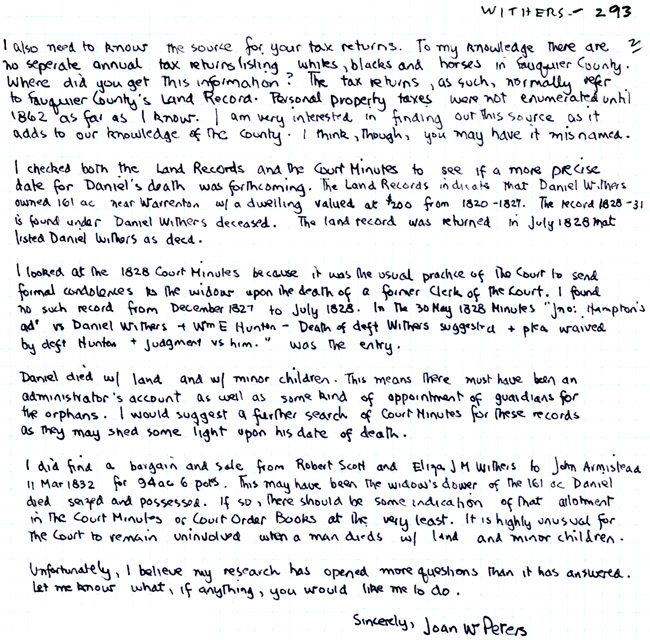 WITHERS - 293
2/
I also need to know the source for your tax returns. To my knowledge there are
no seperate annual tax returns listing whites, blacks and horses in Fauquier County.
Where did you get this information? The tax returns, as such, normally refer
to Fauquier County's Land Record. Personal property taxes were not enumerated until
1862 as far as I know. I am very interested in finding out this source as it
adds to our knowledge of the county. I think, though, you may have it misnamed.
I checked both the Land Records and the Court Minutes to see if a more precise
date for Daniel's death was forthcoming. The Land Records indicate that Daniel Withers
owned 161 ac near Warrenton w/ a dwelling valued at $200 from 1820-1827. The record 1828-31
is found under Daniel Withers deceased. The land record was returned in July 1828 that
listed Daniel Withers as decd.
I looked at the 1828 Court Minutes because it was the usual practice of the Court to send
formal condolences to the widow upon the death of a former Clerk of the Court. I found
no such record from December 1827 to July 1828. In the 30 May 1828 Minutes "Jno: Hampton's
ad" vs Daniel Withers + Wm E Hunton - Death of deft Withers suggested + plea waived
by deft Hunton + judgment vs him." was the entry.
Daniel died w/ land and w/ minor children. This means there must have been an
administrator's account as well as some kind of appointment of guardians for
the orphans. I would suggest a further search of Court Minutes for these records
as they may shed some light upon his date of death.
I did find a bargain and sale from Robert Scott and Eliza J M Withers to John Armistead
11 Mar 1832 for 94ac 6 pols. This may have been the widow's dower of the 161 ac Daniel
died seized and possessed. If so, there should be some indication of that allotment
in the Court Minutes or Court Order Books at the very least. It is highly unusual for
the Court to remain uninvolved when a man dieds w/ land and minor children.
Unfortunately, I believe my research has opened more questions than it has answered.
Let me know what, if anything, you would like me to do.
Sincerely, Joan W Peters